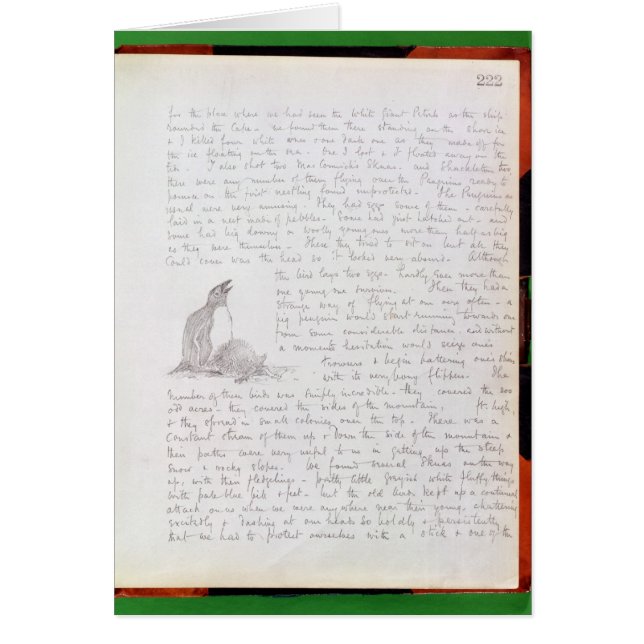 222
for the place where we had seen the white Giant Petrels as the ship
rounded the Cape - we found them there standing on the shore ice
& I killed four white ones & one dark one as they made off for
the ice floating on the sea. One I lost & it floated away on the
tide. I also shot two MacCormick's Skuas. and Shackleton two,
there were any number of them flying over the Penguins ready to
pounce on the first nestling found unprotected. The Penguins as
usual were very amusing. They had eggs some of them - carefully
laid in a nest made of pebbles. Some had just hatched out - and
some had big downy or woolly young ones more than half as big
as they were themselves. These they tried to sit on but all they
could cover was the head so it looked very absurd. Although
the bird lays two eggs. hardly ever more than
one young one survives. Then they had a
strange way of flying at one very often - a
big penguin would start running towards one
from some considerable distance and without
a moments hesitation would seize one's
trowsers & begin battering one's shins
with its very bony flippers. The
number of these birds was simply incredible - they covered the 200
odd acres - they covered the sides of the mountain, ft. high,
& they spread in small colonies over the top. There was a
constant stream of them up & down the side of the mountain &
their paths were very useful to us in getting up the steep
snow & rocky slopes. We found several Skuas on the way
up, with their fledgelings - pretty little greyish white fluffy things
with pale blue bill & feet - but the old birds kept up a continual
attack on us when we were any where near their young, chattering
excitedly & dashing at our heads so boldly & persistently
that we had to protect ourselves with a stick & one of the